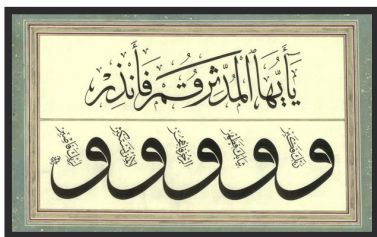 يَأَيُّهَا الْمُدَّثِّرُ قُمْ فَأَنْذِرْ
وَرَبَّكَ فَكَبِّرْ وَثِيَابَكَ فَطَهِّرْ وَالرُّجْزَ فَاهْجُرْ وَلَا تَمْنُنْ تَسْتَكْثِرُ وَلِرَبِّكَ فَاصْبِرْ